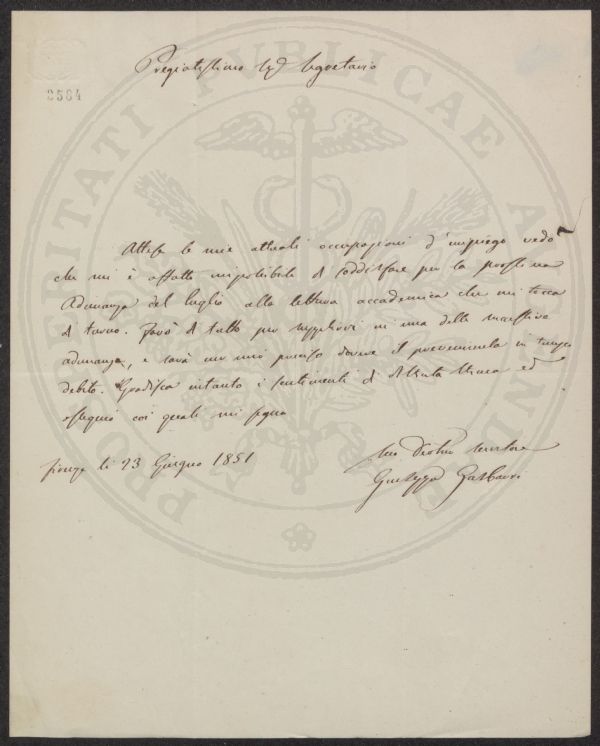 2564
Pregiatissimo Sig.r Segretario
Attese le mie attuali occupazioni d'impiego vedo
che mi è affatto impossibile di soddisfare per la prossima
Adunanza del luglio alla lettura accademica che mi tocca
di turno. Farò di tutto per supplirvi in una delle successive
adunanze, e sarà un mio preciso dovere il prevenirnela in tempo
debito. Gradisca intanto i sentimenti di distinta stima ed
ossequio coi quali mi segno
Firenze li 23 Giugno 1851
Suo Devotmo servitore
Giuseppe
PROSPERITATI PUBLICAE AUGENDAE